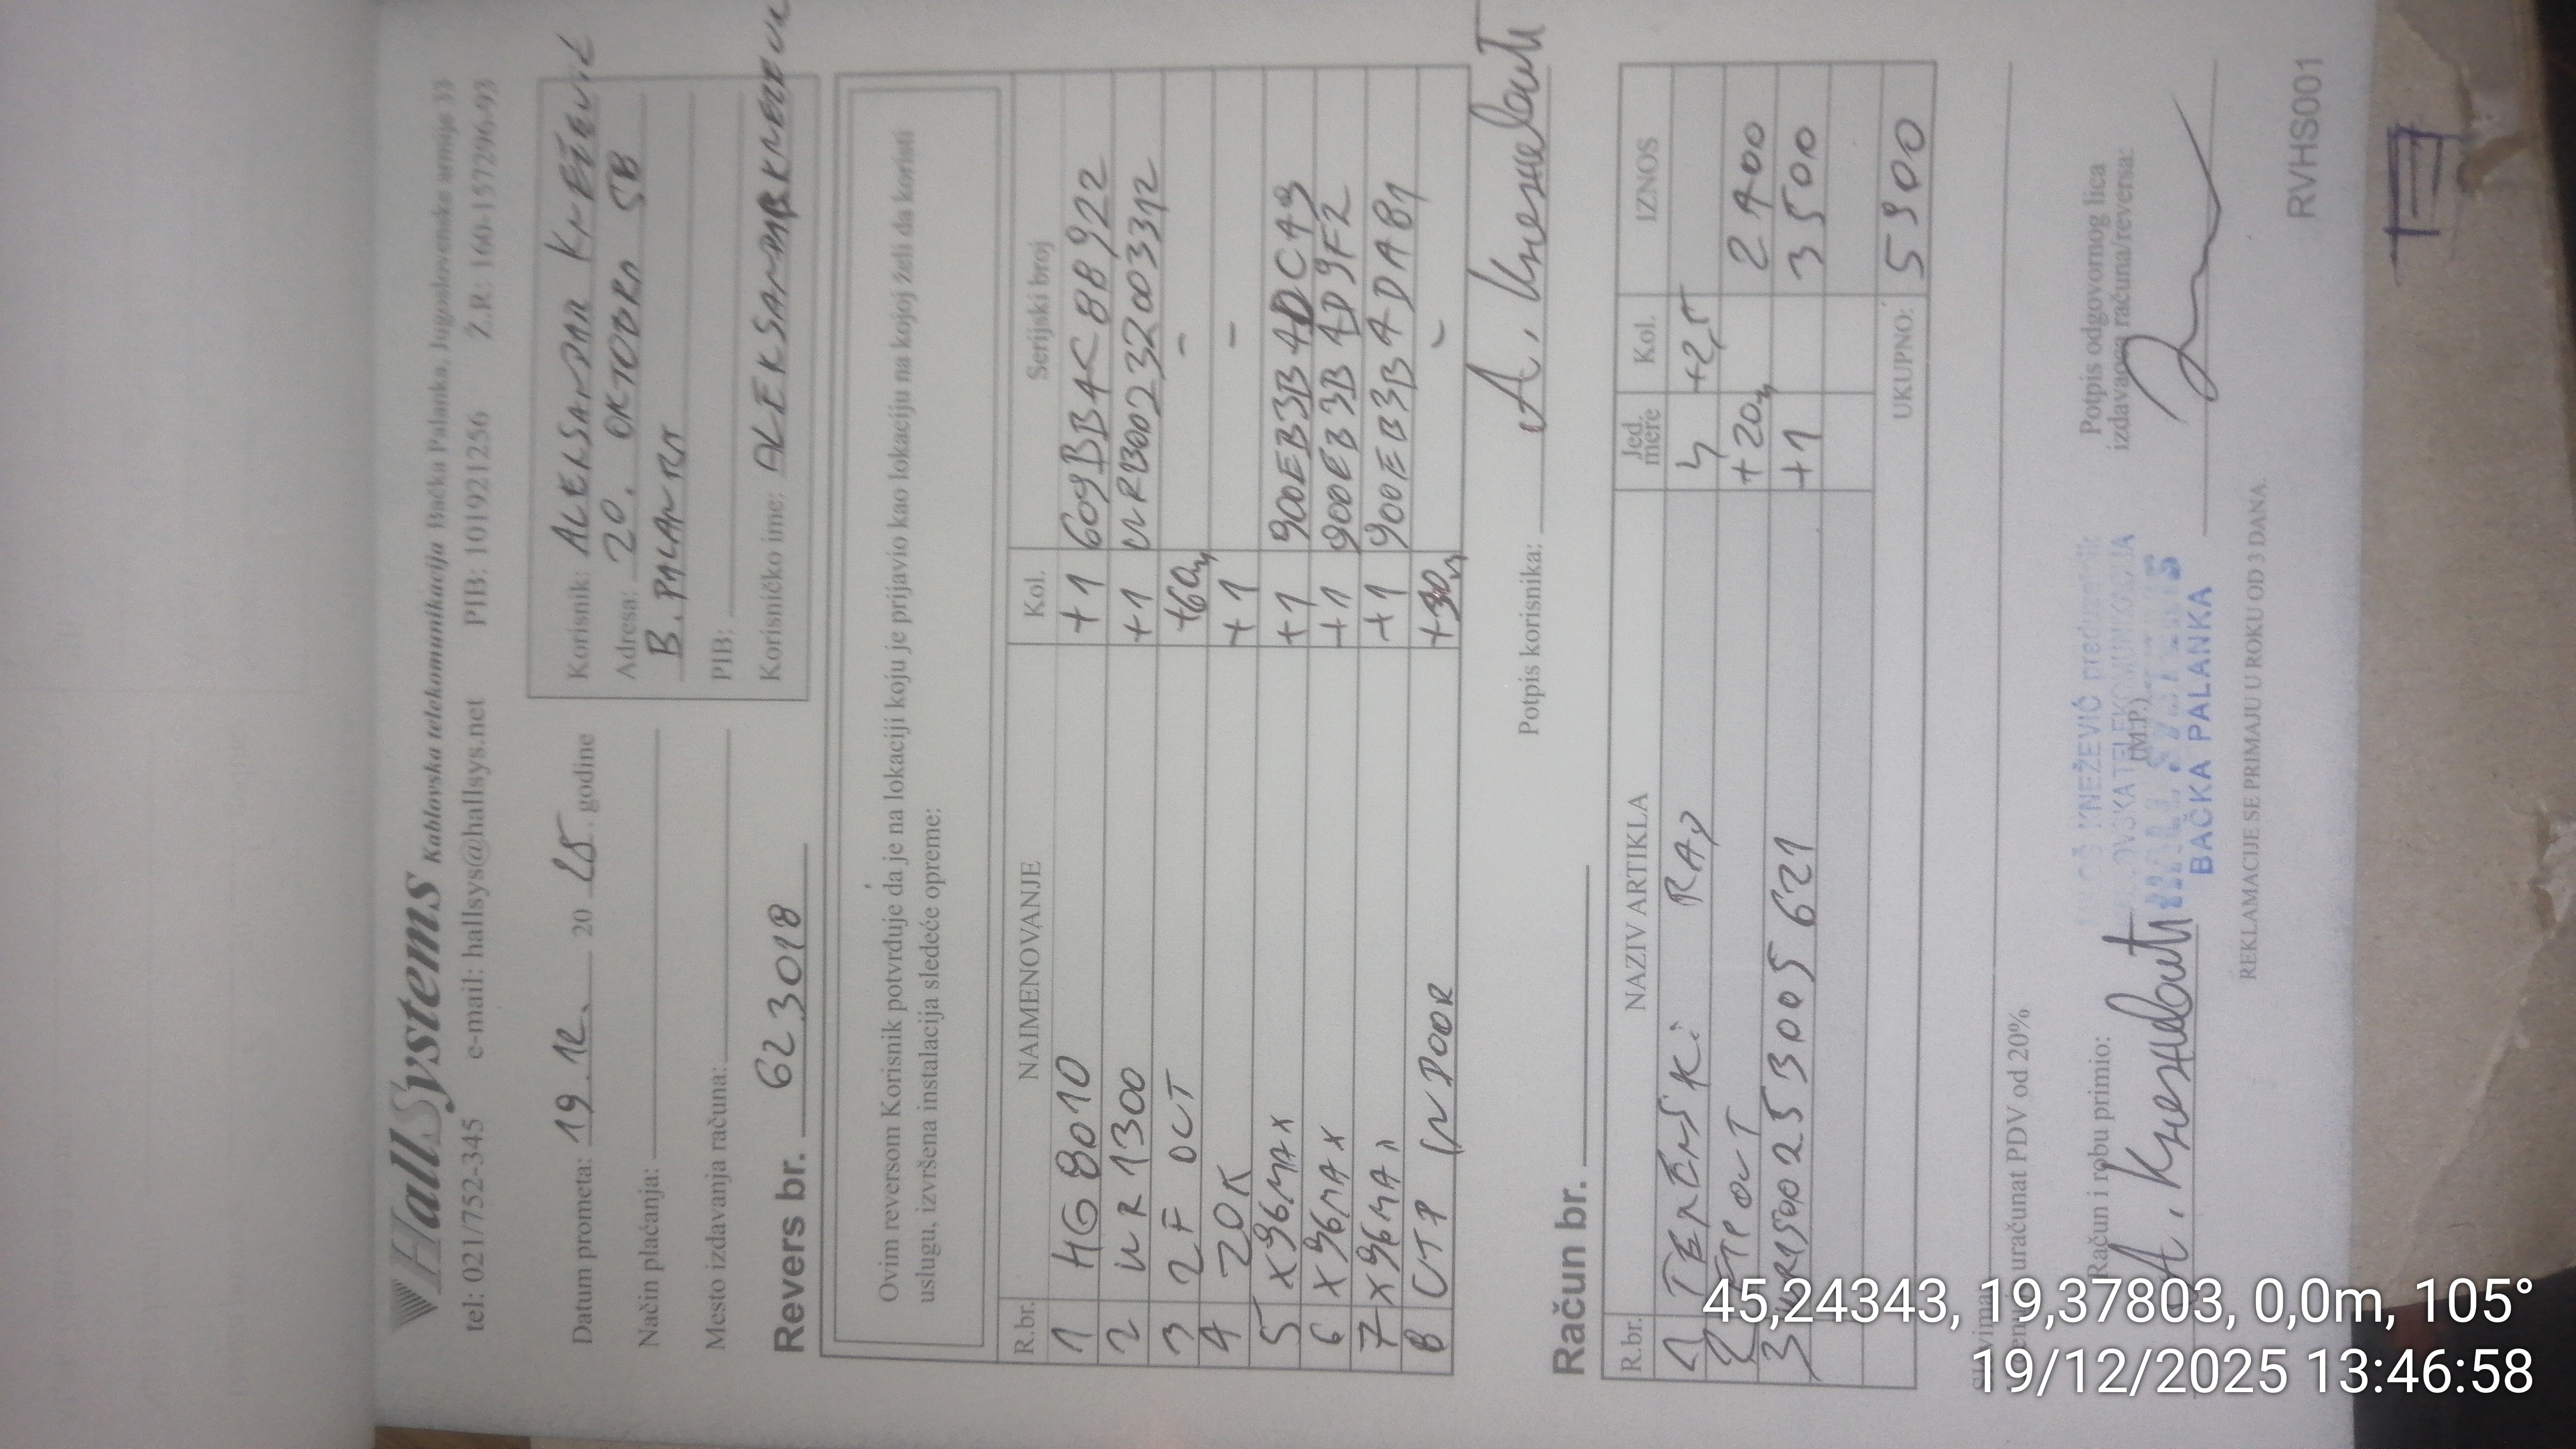 HallSystems Kablovska telekomunikacija Bačka Palanka, Jugoslovenske armije 33
tel: 021/752-345 e-mail: hallsys@hallsys.net PIB: 101921256 Ž.R: 160-157296-93
Datum prometa: 19.12. 20 25. godine
Način plaćanja:
Mesto izdavanja računa:
Revers br. 623018
Korisnik: ALEKSANDAR KNEŽEVIĆ
Adresa: 20. OKTOBRA 5B
B. PALANKA
PIB:
Korisničko ime: ALEKSANDARKNEZEVIC
Ovim reversom Korisnik potvrđuje da je na lokaciji koju je prijavio kao lokaciju na kojoj želi da koristi
uslugu, izvršena instalacija sledeće opreme:
R.br. NAIMENOVANJE Kol. Serijski broj
1 HG8010 +1 609BB4C88922
2 WR1300 +1 WR1300232003312
3 2F OUT +60m -
4 ZOK +1 -
5 X96MAX +1 900EB3B4DCA9
6 X96MAX +1 900EB3B4D9F2
7 X96MAX +1 900EB3B4DAB1
8 UTP INDOOR +30m -
Potpis korisnika: A. Кнежевић
Račun br.
R.br. NAZIV ARTIKLA Jed. mere Kol. IZNOS
1 TERENSKI RAD 4 +2,5
2 FTP OUT +20m 2400
3 WR15002533005621 +1 3500
UKUPNO: 5900
uračunat PDV od 20%
Račun i robu primio:
A. Кнежевић
(M.P.)
KNEŽEVIĆ preduzetnik
BAČKA PALANKA
Potpis odgovornog lica
izdavaoca računa/reversa:
REKLAMACIJE SE PRIMAJU U ROKU OD 3 DANA.
RVHS001
45,24343, 19,37803, 0,0m, 105°
19/12/2025 13:46:58